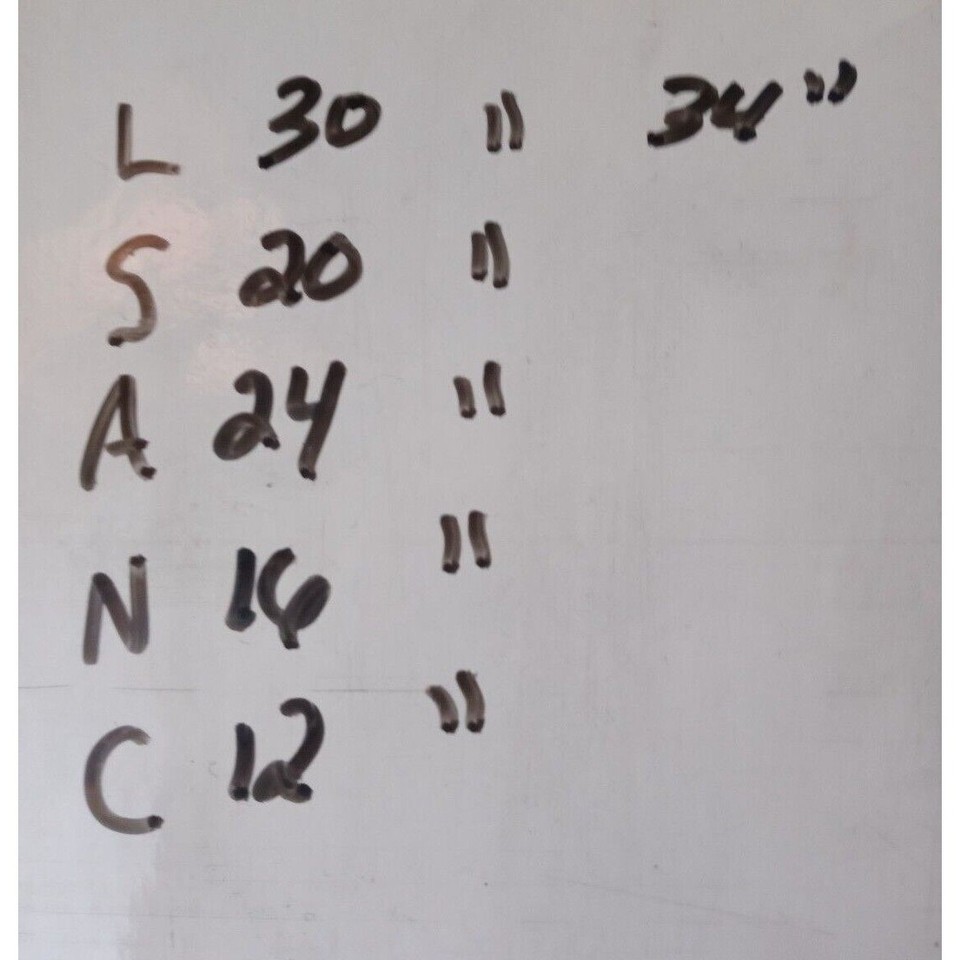 L 30 " 34"
S 20 "
A 24 "
N 16 "
C 12 "